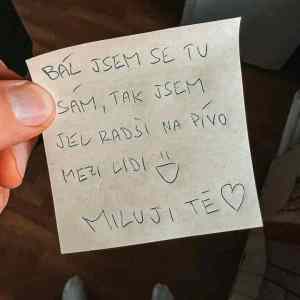 BÁL JSEM SE TU
SÁM, TAK JSEM
JEL RADŠI NA PÍVO
MEZI LIDI
MILUJI TĚ ♡